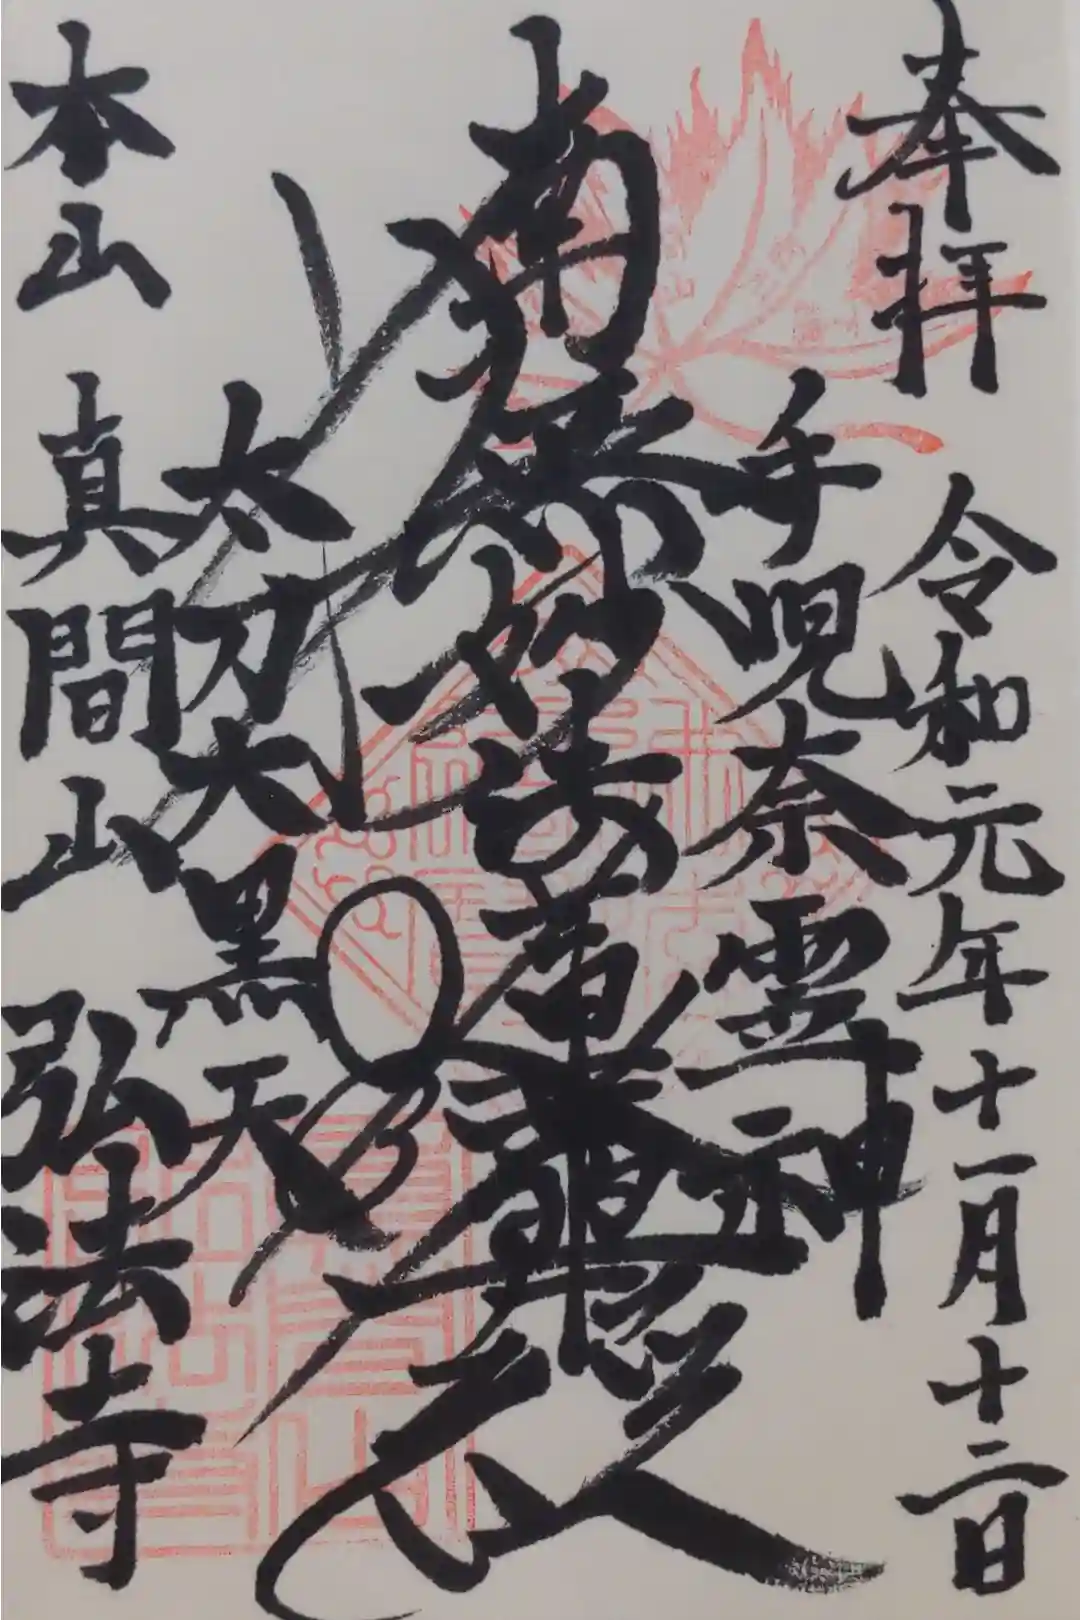 奉拝
令和元年十一月十二日
手児奈霊神
南無妙法蓮華経
太刀大黒天
本山 真間山 弘法寺